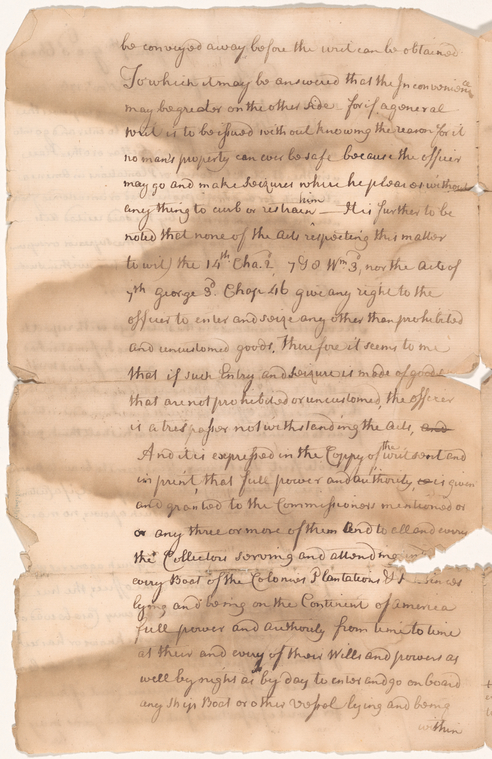 be conveyed away before the writ can be obtained
To which it may be answered that the Inconvenience
may be greater on the other side for if a general
writ is to be issued without knowing the reason for it
no mans property can ever be safe because the officer
may go and make Seizures where he pleases without
any thing to curb or restrain him — It is further to be
noted that none of the Acts respecting this matter
to wit, the 14th Cha. 2d, 7 & 8 Wm 3d, nor the Acts of
7th george 3d. Chap. 46 give any right to the
officer to enter and seize any other than prohibited
and uncustomed goods, therefore it seems to me
that if such Entry and Seizure is made of goods
that are not prohibited or uncustomed, the officer
is a trespasser not withstanding the Acts, and
And it is expressed in the Coppy of the writ sent and
in print, that full power and authority is given
and granted to the Commissioners mentioned or
or any three or more of them And to all and every
the Collectors serving and attending in
every Boat of the Colonies Plantations &
lying and being on the Continent of america
full power and authority from time to time
at their and every of their Wills and powers as
well by night as by day to enter and go on board
any Ship Boat or other Vessel lying and being
within